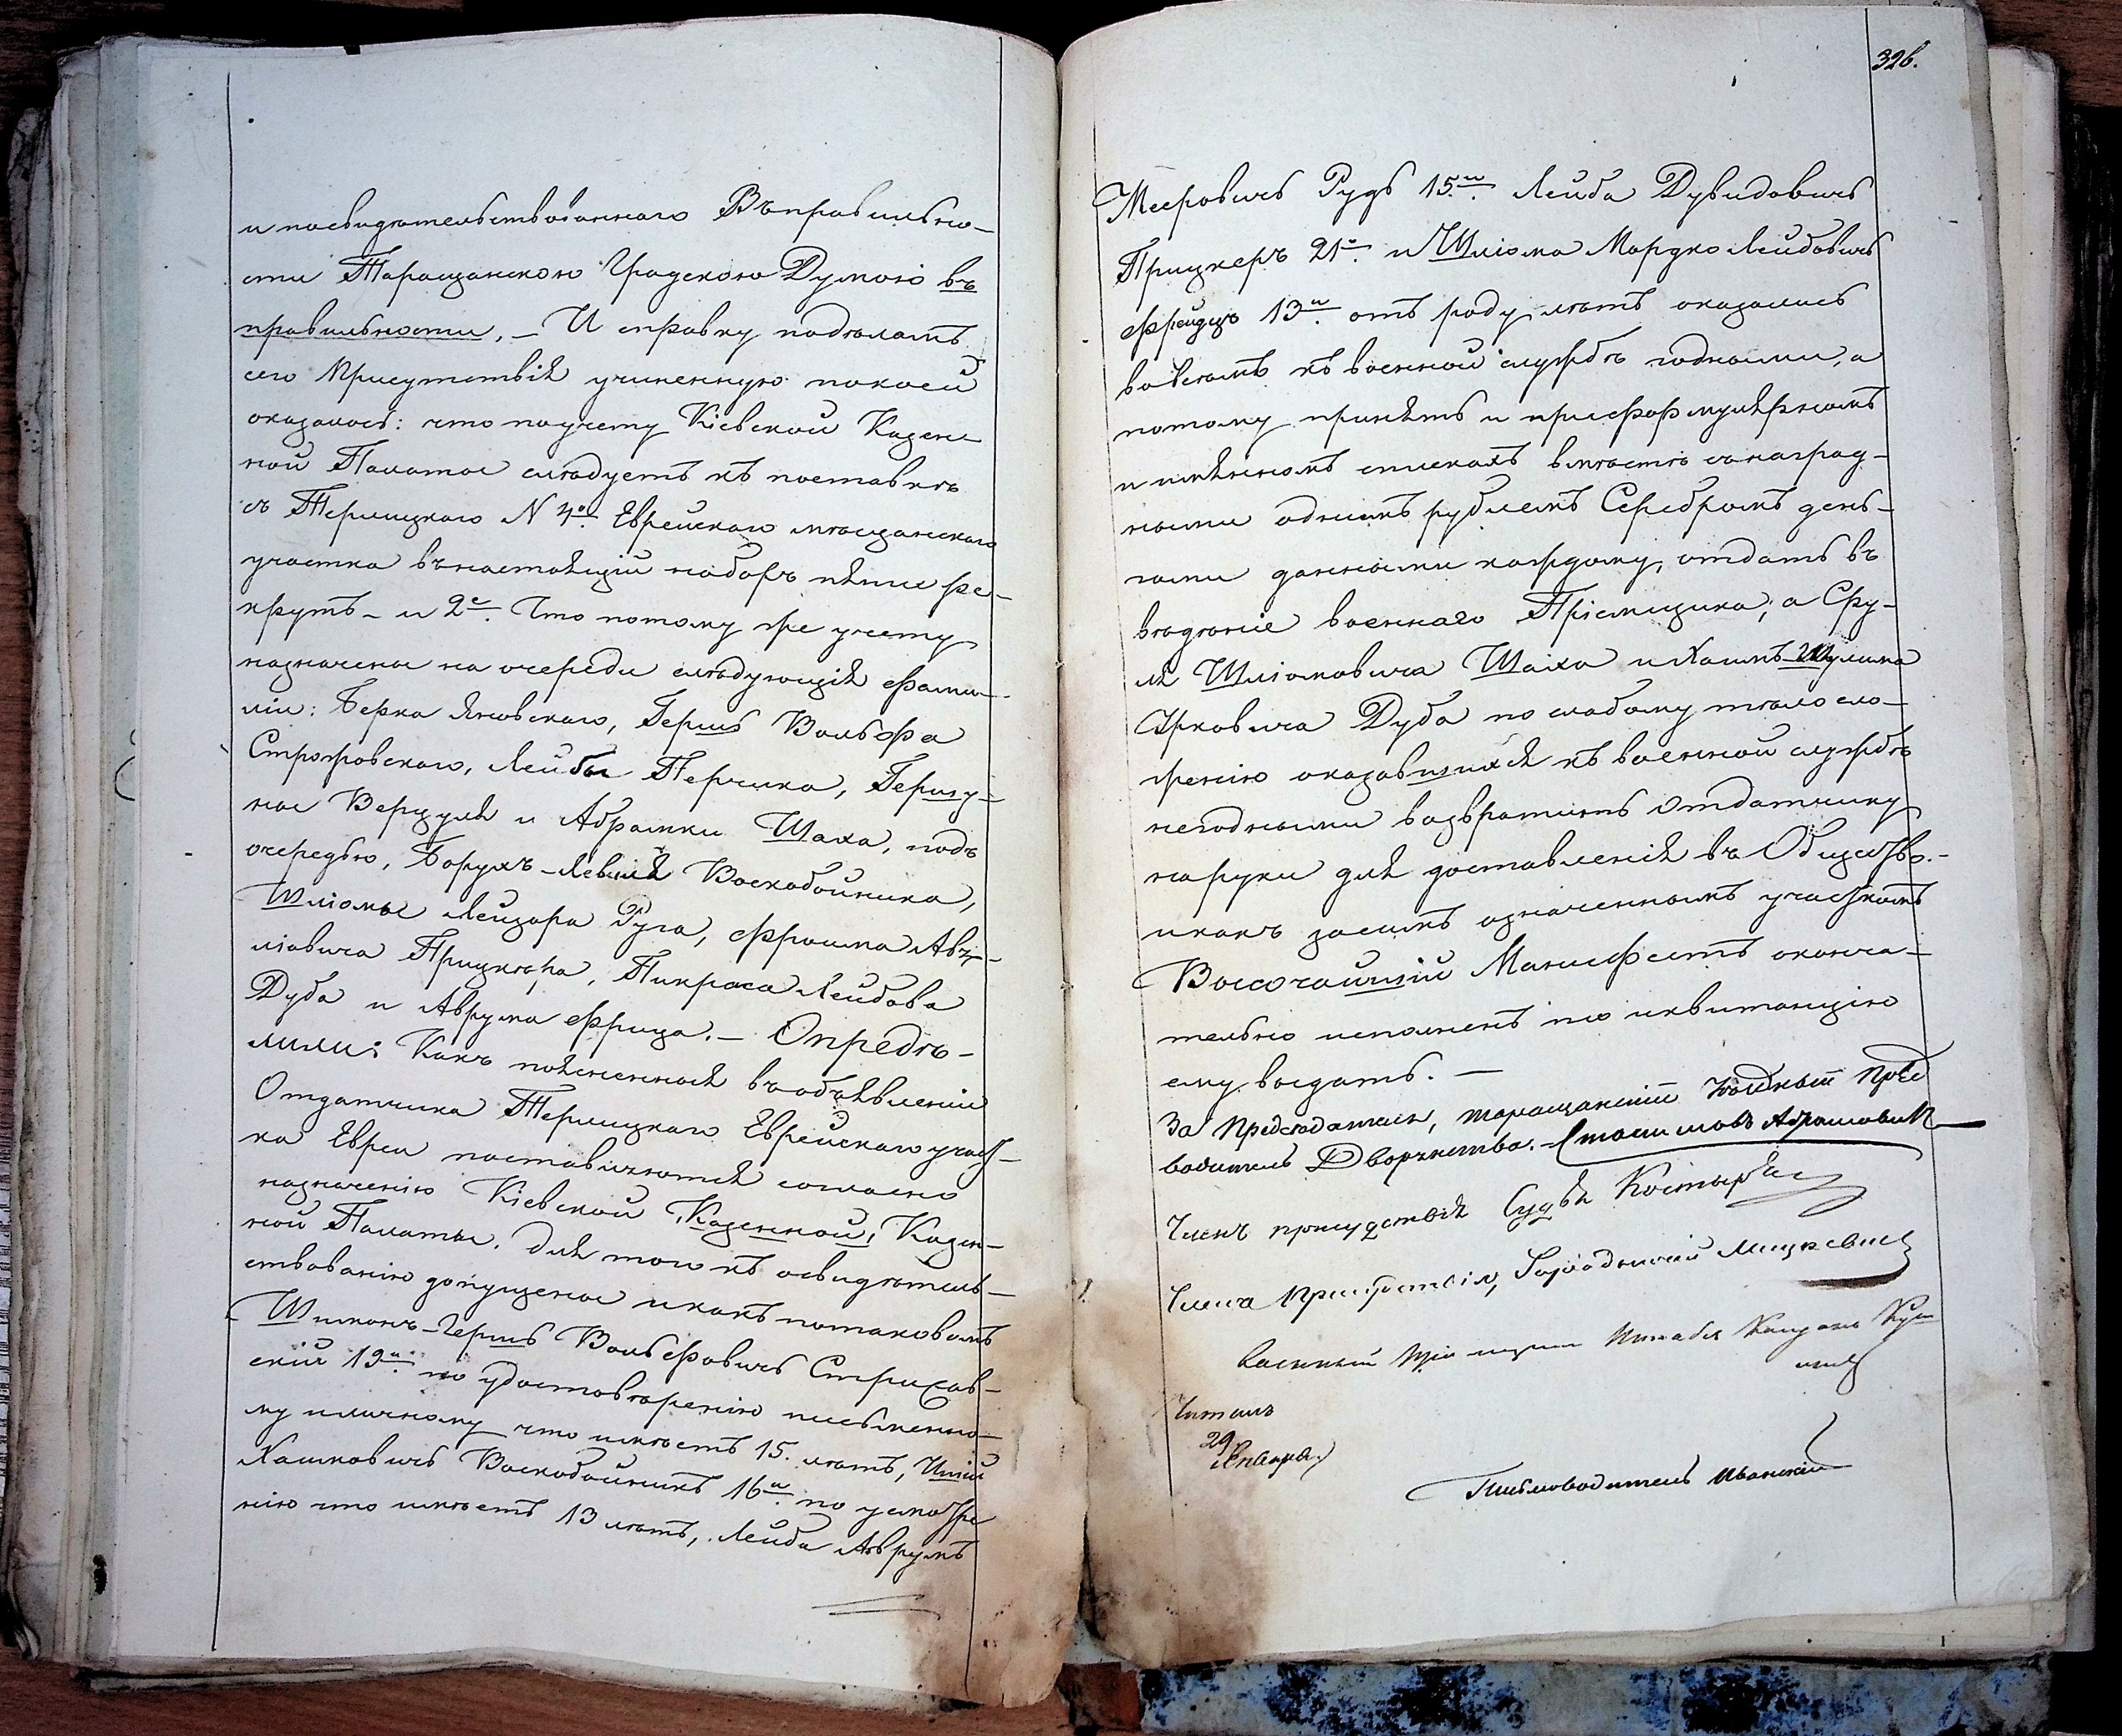 и посвидѣтельствованнаго Въправильно-
сти Таращанскою Градскою Думою въ
правильности, – И справку подѣламъ
сего Присутствія учиненную покоей
оказалось: что поучету Кіевской Казен-
ной Палаты слѣдуетъ къ поставкѣ
съ Терлицкаго N 4º. Еврейскаго мѣщанскаго
участка внастоящій наборъ пяти ре-
крутъ – и 2е. Что потому же учету
назначены на очереди слѣдующія фами-
ліи: Берка Яновскаго, Герша Вольфа
Строжовскаго, Лейбы Перчика, Гершу-
на Верцуля и Абрамки Шаха, подъ
очередью, Борухъ-Левия Воскобойника,
Шліомы Лейзора Руга, Фроима Авру-
міовича Прицкера, Пинкраса Лейбова
Дуба и Аврума Фрица. – Опредѣ-
лили: Какъ поясненныя въ объявленіи
Отдатчика Терлицкаго Еврейскаго участ-
ка Евреи поставляются согласно
назначенію Кіевской Казенной, Казен-
ной Палаты. для того къ освидѣтель-
ствованію допущены икакъ потаковомъ
Шимонъ-Гершъ Вольфовичъ Строжов-
скій 19и. по удостовѣренію письменно-
му иличному что имѣетъ 15. лѣтъ, Ицій
Хаимовичъ Воскобойникъ 16и. по усмотре
нію что имѣетъ 13 лѣтъ, Лейба Аврумъ
326.
Мееровичъ Рудъ 15.и Лейба Дувидовичъ
Прицкеръ 21º. и Шліома Мордко Лейбовичъ
Фрейдцъ 13и. отъ роду лѣтъ оказались
вовсемъ къ военной службѣ годными, а
потому принять и приформулярномъ
и имянномъ спискахъ вмѣстѣ снаград-
ными однимъ рублемъ Серебромъ день-
гами данными каждому, отдать въ
вѣдѣніе военнаго Пріемщика; а Сру-
ля Шліомовича Шаха и Хаимъ-Шулима
Ицковича Дуба по слабому тѣлосло-
женію оказавшихся къ военной службѣ
негодными возвратить Отдатчику
наруки для доставленія въ Общество. –
икакъ засимъ означеннымъ участкомъ
Высочайшій Манифестъ оконча-
тельно исполненъ то иквитанцію
ему выдать. –
За Предсѣдателя, таращанскій уѣздный Пред
водитель Дворянства. Станиславъ Абрамовичъ
Членъ присудствія Судья Костырка
Члена Присутствія, Городничій Мицкевичъ
Военный Пріемщикъ Штабсъ Капитанъ
Читалъ
29 Января
Письмоводитель Иванскій